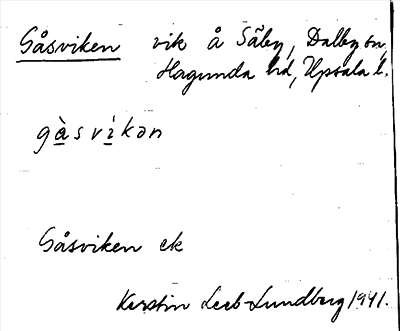 Gåsviken vik å Säby, Dalby sn,
Hagunda hd, Upsala l.
gàsvìkən
Gåsviken ek
Kerstin Leeb-Lundberg 1941.